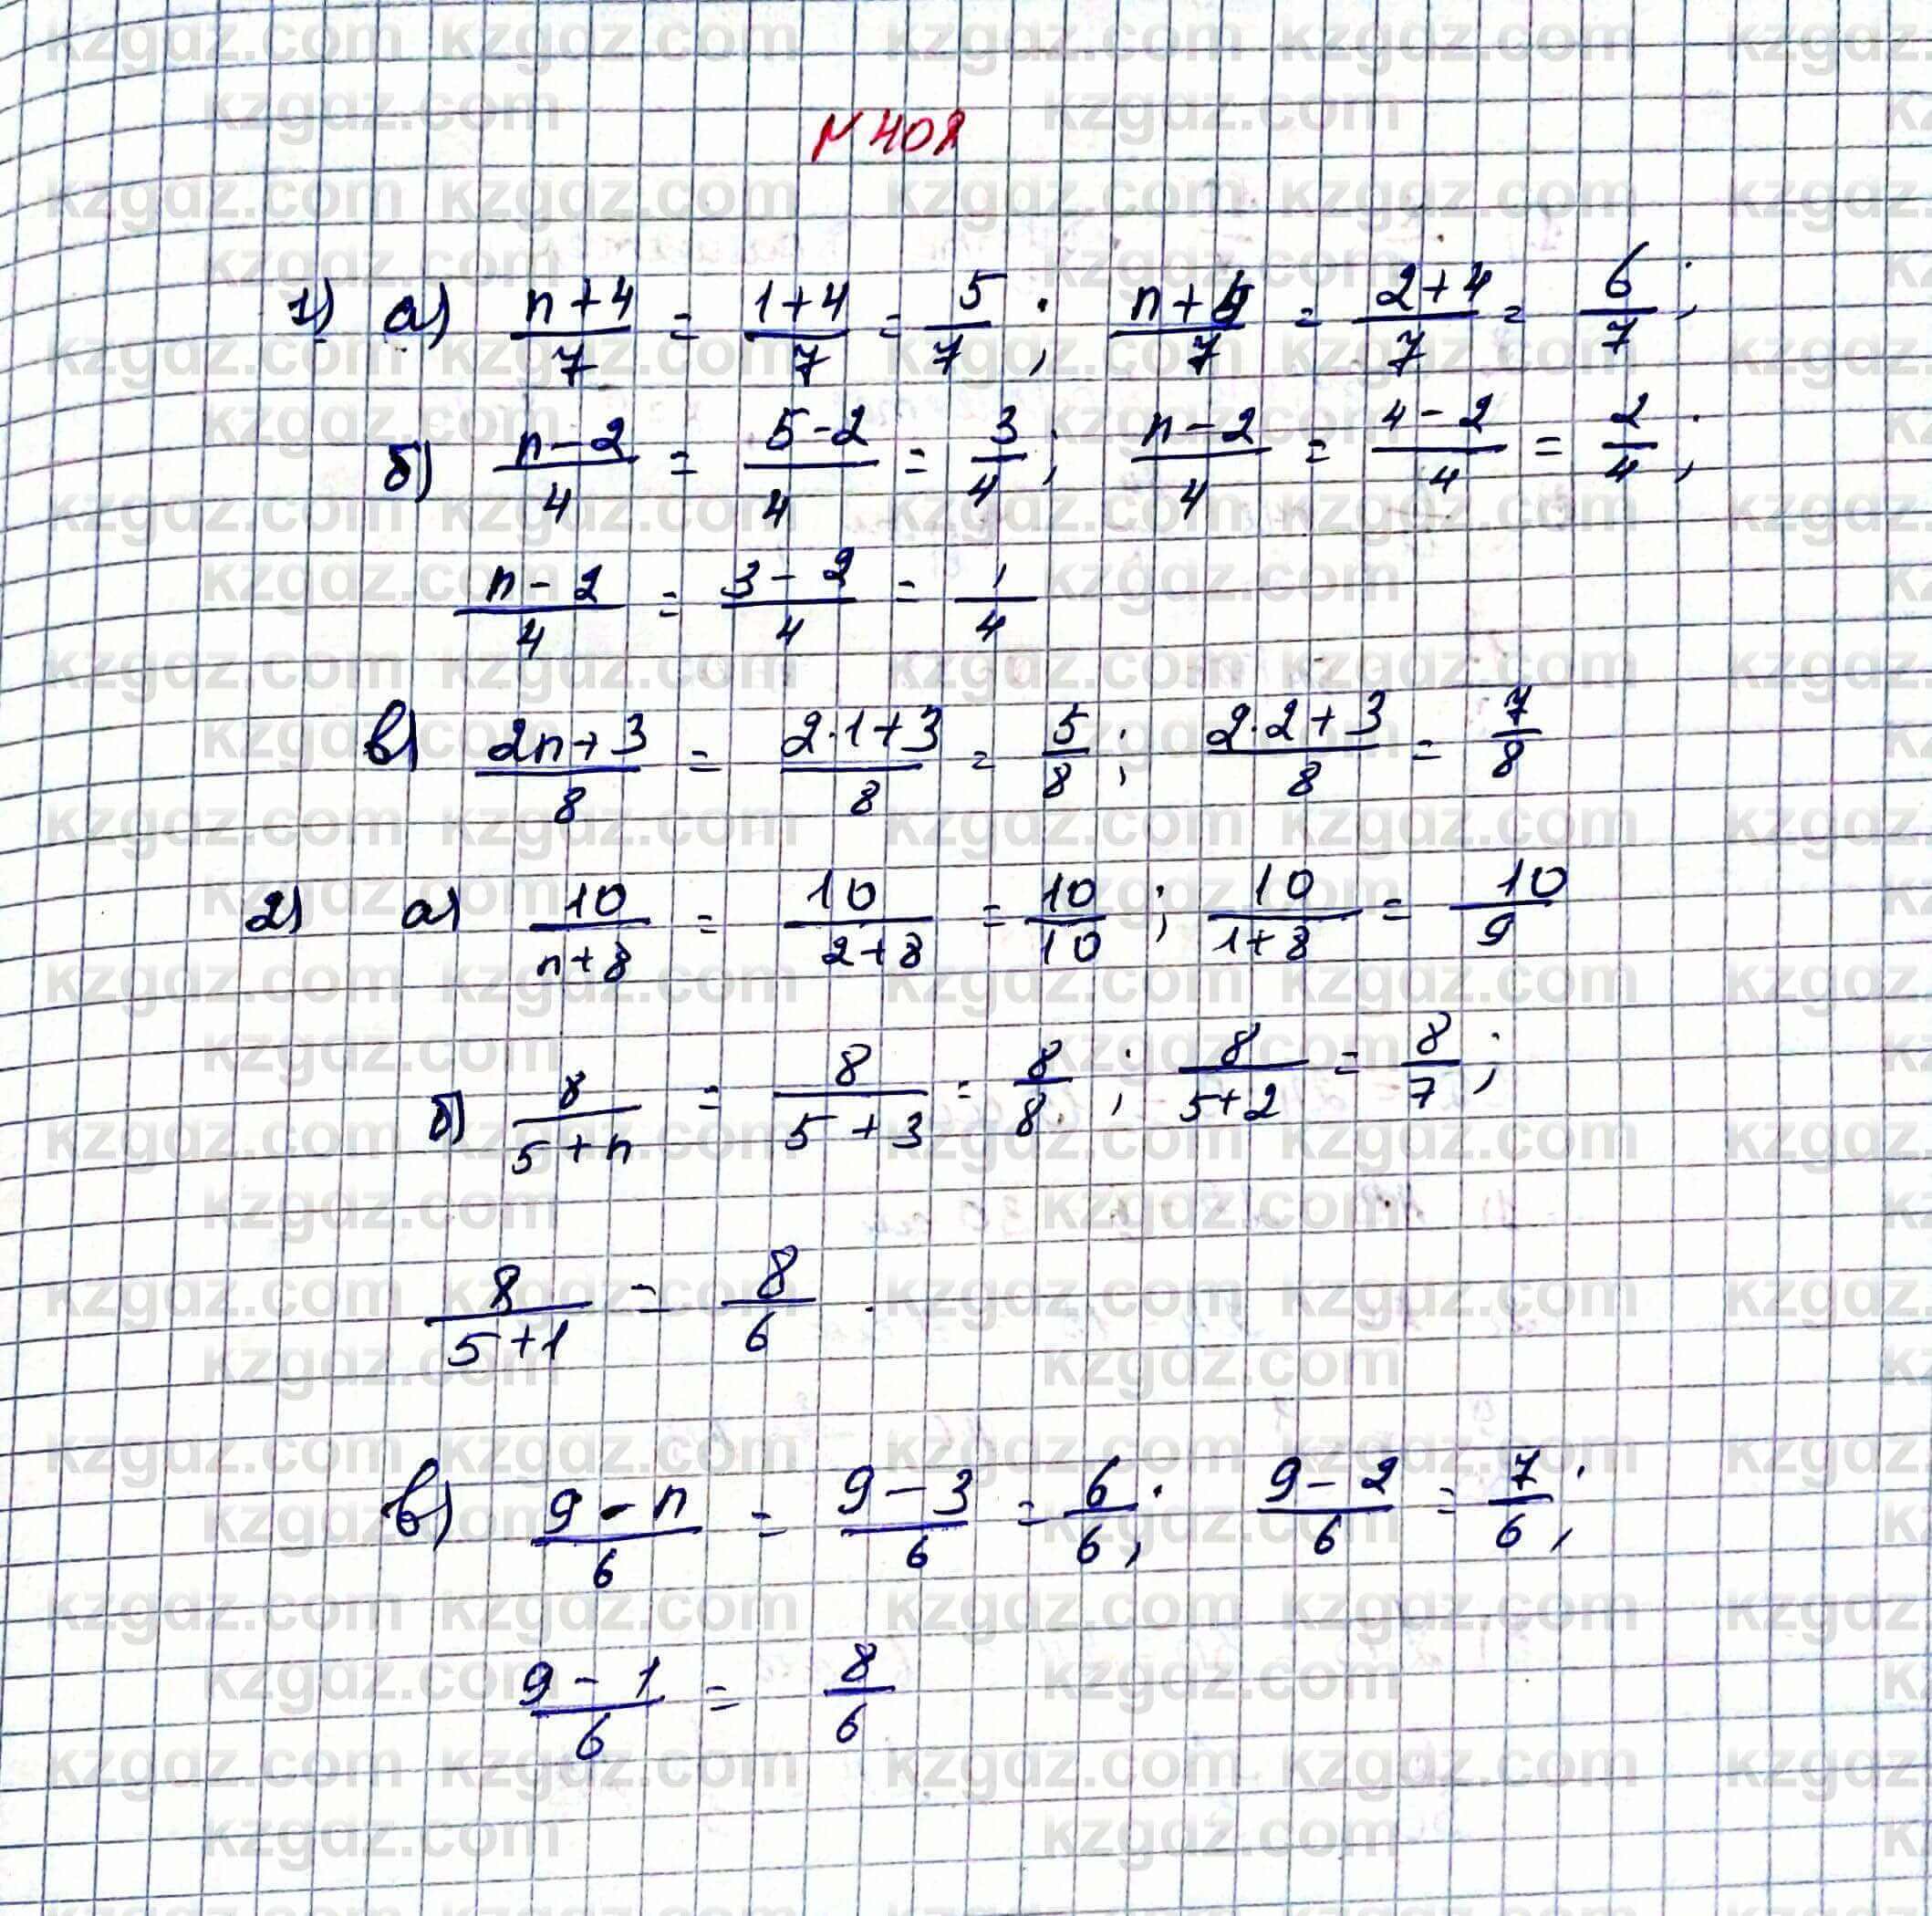 № 408
1) а) (n+4)/7 = (1+4)/7 = 5/7 ; (n+4)/7 = (2+4)/7 = 6/7 ;
б) (n-2)/4 = (5-2)/4 = 3/4 ; (n-2)/4 = (4-2)/4 = 2/4 ;
(n-2)/4 = (3-2)/4 = 1/4
в) (2n+3)/8 = (2·1+3)/8 = 5/8 ; (2·2+3)/8 = 7/8
2) а) 10/(n+8) = 10/(2+8) = 10/10 ; 10/(1+8) = 10/9
б) 8/(5+n) = 8/(5+3) = 8/8 ; 8/(5+2) = 8/7 ;
8/(5+1) = 8/6
в) (9-n)/6 = (9-3)/6 = 6/6 ; (9-2)/6 = 7/6 ;
(9-1)/6 = 8/6
kzgdz.com